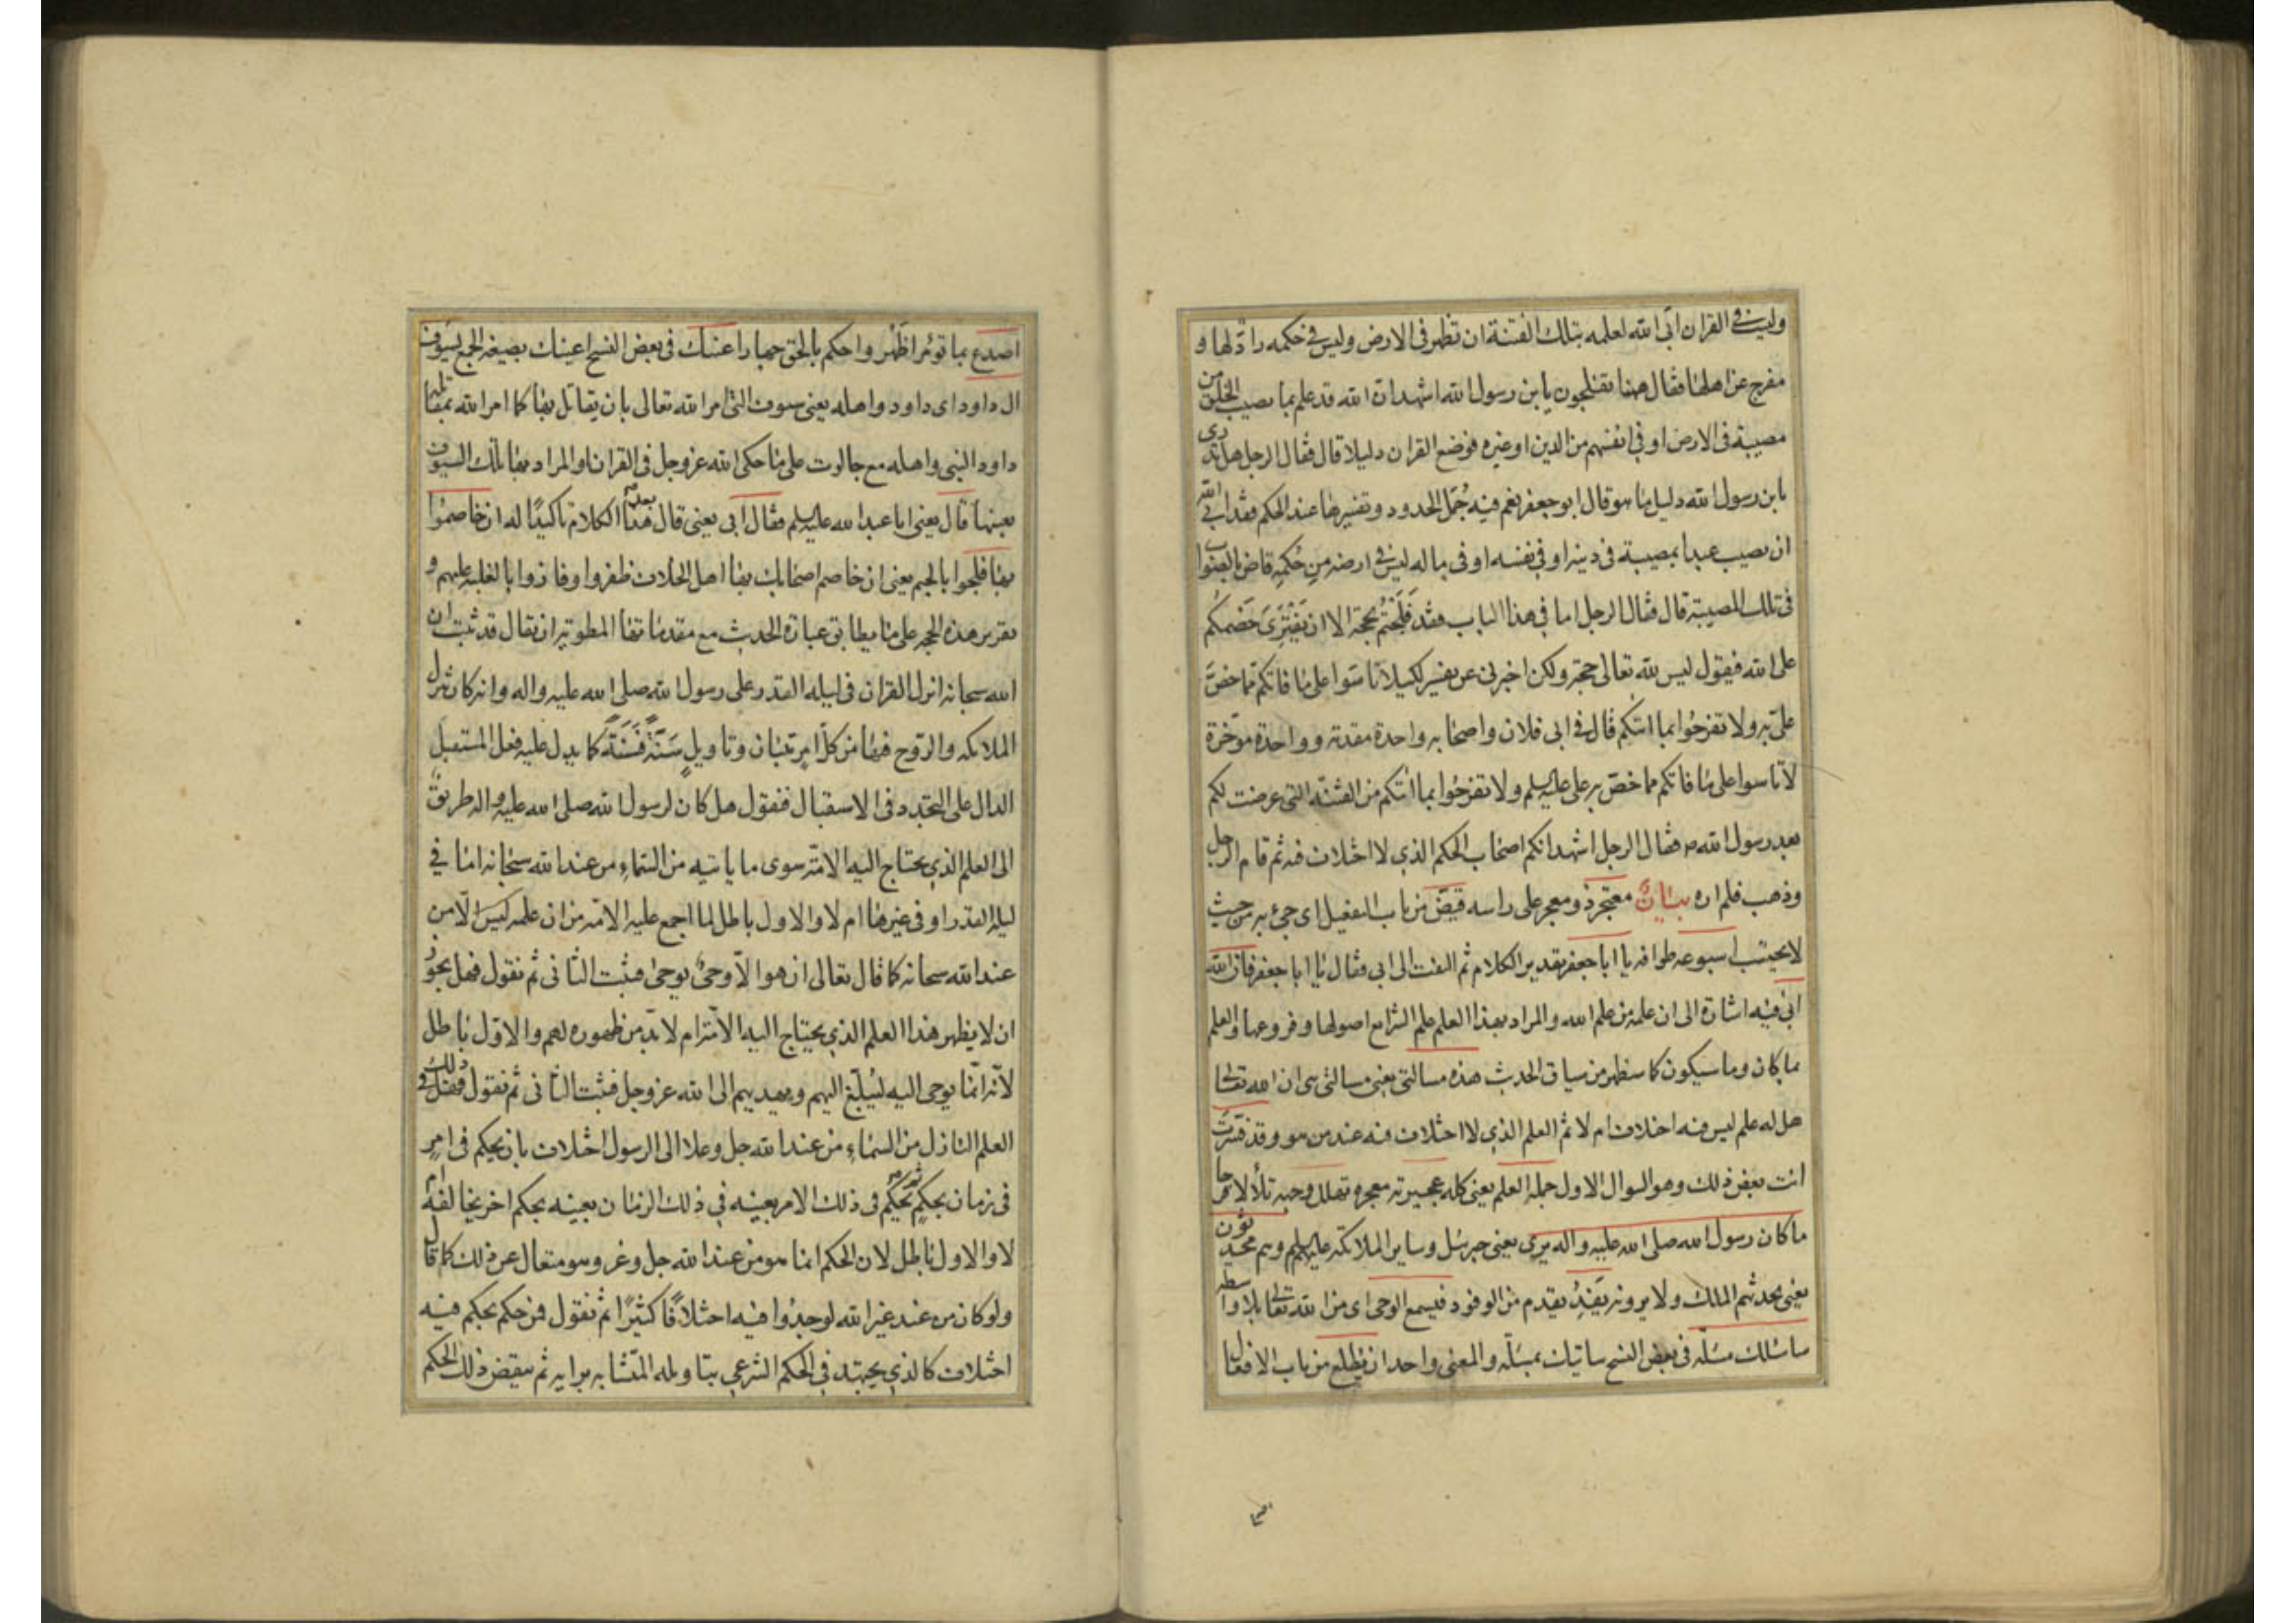 وليس في القران ابى الله لعلمه بتلك الفتنة ان تظهر فى الارض وليس في حكمه رادّ لها و
مفرج عن اهلها فقال ههنا تفلجون يابن رسول الله اشهد ان الله قد علم بما يصيب الخلق من
مصيبة فى الارض او في انفسهم من الدين او غيره فوضع القران دليلا قال فقال الرجل هل تدرى
يابن رسول الله دليل ما هو قال ابو جعفر نعم فيه جُمَل الحدود وتفسيرها عند الحكم فقد ابى الله
ان يصيب عبدا بمصيبة فى دينه او في نفسه او فى ماله ليس في ارضه من حُكمِهِ قاض بالصواب
فى تلك المصيبة قال فقال الرجل اما في هذا الباب فقد فَلَجْتُم بحجة الا ان يَفْتَرِىَ خَصْمُكُم
على الله فيقول ليس لله تعالى حجة ولكن اخبرنى عن تفسير لكيلا تاسَوا على ما فاتكم مما خصَّ
علىّ به ولا تفرحُوا بما اتيكم قال في ابى فلان واصحابه واحدة مقدمة وواحدة موخّرة
لا تاسوا على ما فاتكم مما خصّ به على عليه السلم ولا تفرحُوا بما اتيكم من الفتنة التى عرضت لكم
بعد رسول الله ص فقال الرجل اشهد انكم اصحاب الحكم الذي لا اختلاف فيه ثم قام الرجل
وذهب فلم اره بيانٌ معتجر ذو معجر على راسه قيض من باب التفعيل اى جىء به من حيث
لا يحتسب اسبوعه طوافه يا ابا جعفر تقدير الكلام ثم التفت الى ابى فقال يا ابا جعفر فان الله
ابى فيه اشارة الى ان علمه من علم الله والمراد بهذا العلم علم الشرايع اصولها وفروعها والعلم
بما كان وما سيكون كما سيظهر من سياق الحديث هذه مسالتى يعنى مسالتى هى ان الله تعالى
هل له علم ليس فيه اختلاف ام لا ثم العلم الذي لا اختلاف فيه عند من هو وقد فسّرت
انت بعض ذلك وهو السوال الاول جملة العلم يعنى كله عجيرته معجره تهلل وجهه تلألا فرحا
ما كان رسول الله صلى الله عليه واله يرى يعنى جبرئيل وساير الملائكة عليهم السلم وهم محدثون
يعنى يحدثهم الملك ولا يرونه يَفِدُ يقدم من الوفود فيسمع الوحى اى من الله تعالى بلا واسطه
ساسئلك مسئلة فى بعض النسخ ساتيك بمسئلة والمعنى واحد ان يطلع من باب الافعال
اصدع بما تؤمر اظهر واحكم بالحق جهارا عينك فى بعض النسخ اعينك بصيغة الجمع بسيوف
ال داود اى داود واهله يعنى سيوف التى امر الله تعالى بان يقاتل بها كما امر الله بمقاتلة
داود النبى واهله مع جالوت على ما حكى الله عز وجل فى القران او المراد بها تلك السيوف
بعينها قال يعنى ابا عبد الله عليه السلم فقال ابى يعنى قال بعد هذا الكلام تاكيدًا له ان خاصموا
بها فلجوا بالجيم يعنى ان خاصم اصحابك بها اهل الخلاف ظفروا وفازوا بالغلبة عليهم و
تقرير هذه الحجه على ما يطابق عبارة الحديث مع مقدماتها المطوية ان يقال قد ثبت ان
الله سبحانه انزل القران فى ليلة القدر على رسول الله صلى الله عليه واله وانه كان تنزل
الملائكه والروح فيها من كل امر تبيان وتاويلٍ سَنَةً فَسَنَةً كما يدل عليه فعل المستقبل
الدال على التجدد فى الاستقبال فنقول هل كان لرسول الله صلى الله عليه واله طريق
الى العلم الذي يحتاج اليه الامة سوى ما ياتيه من السماء من عند الله سبحانه اما في
ليلة القدر او فى غيرها ام لا والاول باطل لما اجمع عليه الامة من ان علمه ليس الّا من
عند الله سبحانه كما قال تعالى ان هو الّا وحىٌ يوحى فثبت الثانى ثم نقول فهل يجوز
ان لا يظهر هذا العلم الذي يحتاج اليه الامة ام لا بد من ظهوره لهم والاوّل باطل
لانّه انّما يوحى اليه ليُبلّغ اليهم ويهديهم الى الله عز وجل فثبت الثانى ثم نقول فهل فى ذلك
العلم النازل من السماء من عند الله جل وعلا الى الرسول اختلاف بان يحكم فى امرٍ
فى زمان بحكمٍ ثم يحكم فى ذلك الامر بعينه في ذلك الزمان بعينه بحكم اخر يخالفه ام
لا والاول باطل لان الحكم انما هو من عند الله جل وعز وهو متعال عن ذلك كما قال
ولو كان من عند غير الله لوجدُوا فيه اختلافًا كثيرًا ثم نقول فمن حكم بحكم فيه
اختلاف كالذي يجتهد فى الحكم الشرعى بتاويله المتشابه برايه ثم ينقض ذلك الحكم